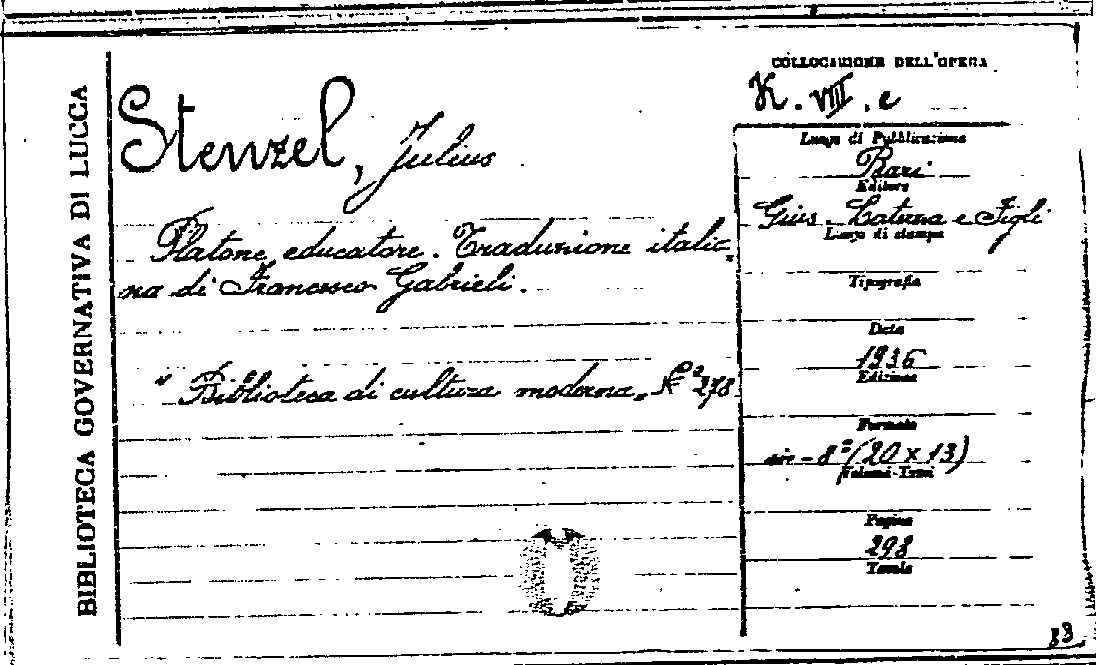 BIBLIOTECA GOVERNATIVA DI LUCCA
Stenzel, Julius
Platone educatore. Traduzione italia-
na di Francesco Gabrieli.
"Biblioteca di cultura moderna" N° 278
COLLOCAZIONE DELL'OPERA
K. VIII. e
Luogo di Pubblicazione
Bari
Editore
Gius. Laterza e Figli
Luogo di stampa
Tipografia
Data
1936
Edizione
Formato
in-8° (20 x 13)
Volumi-Tomi
Pagine
298
Tavole